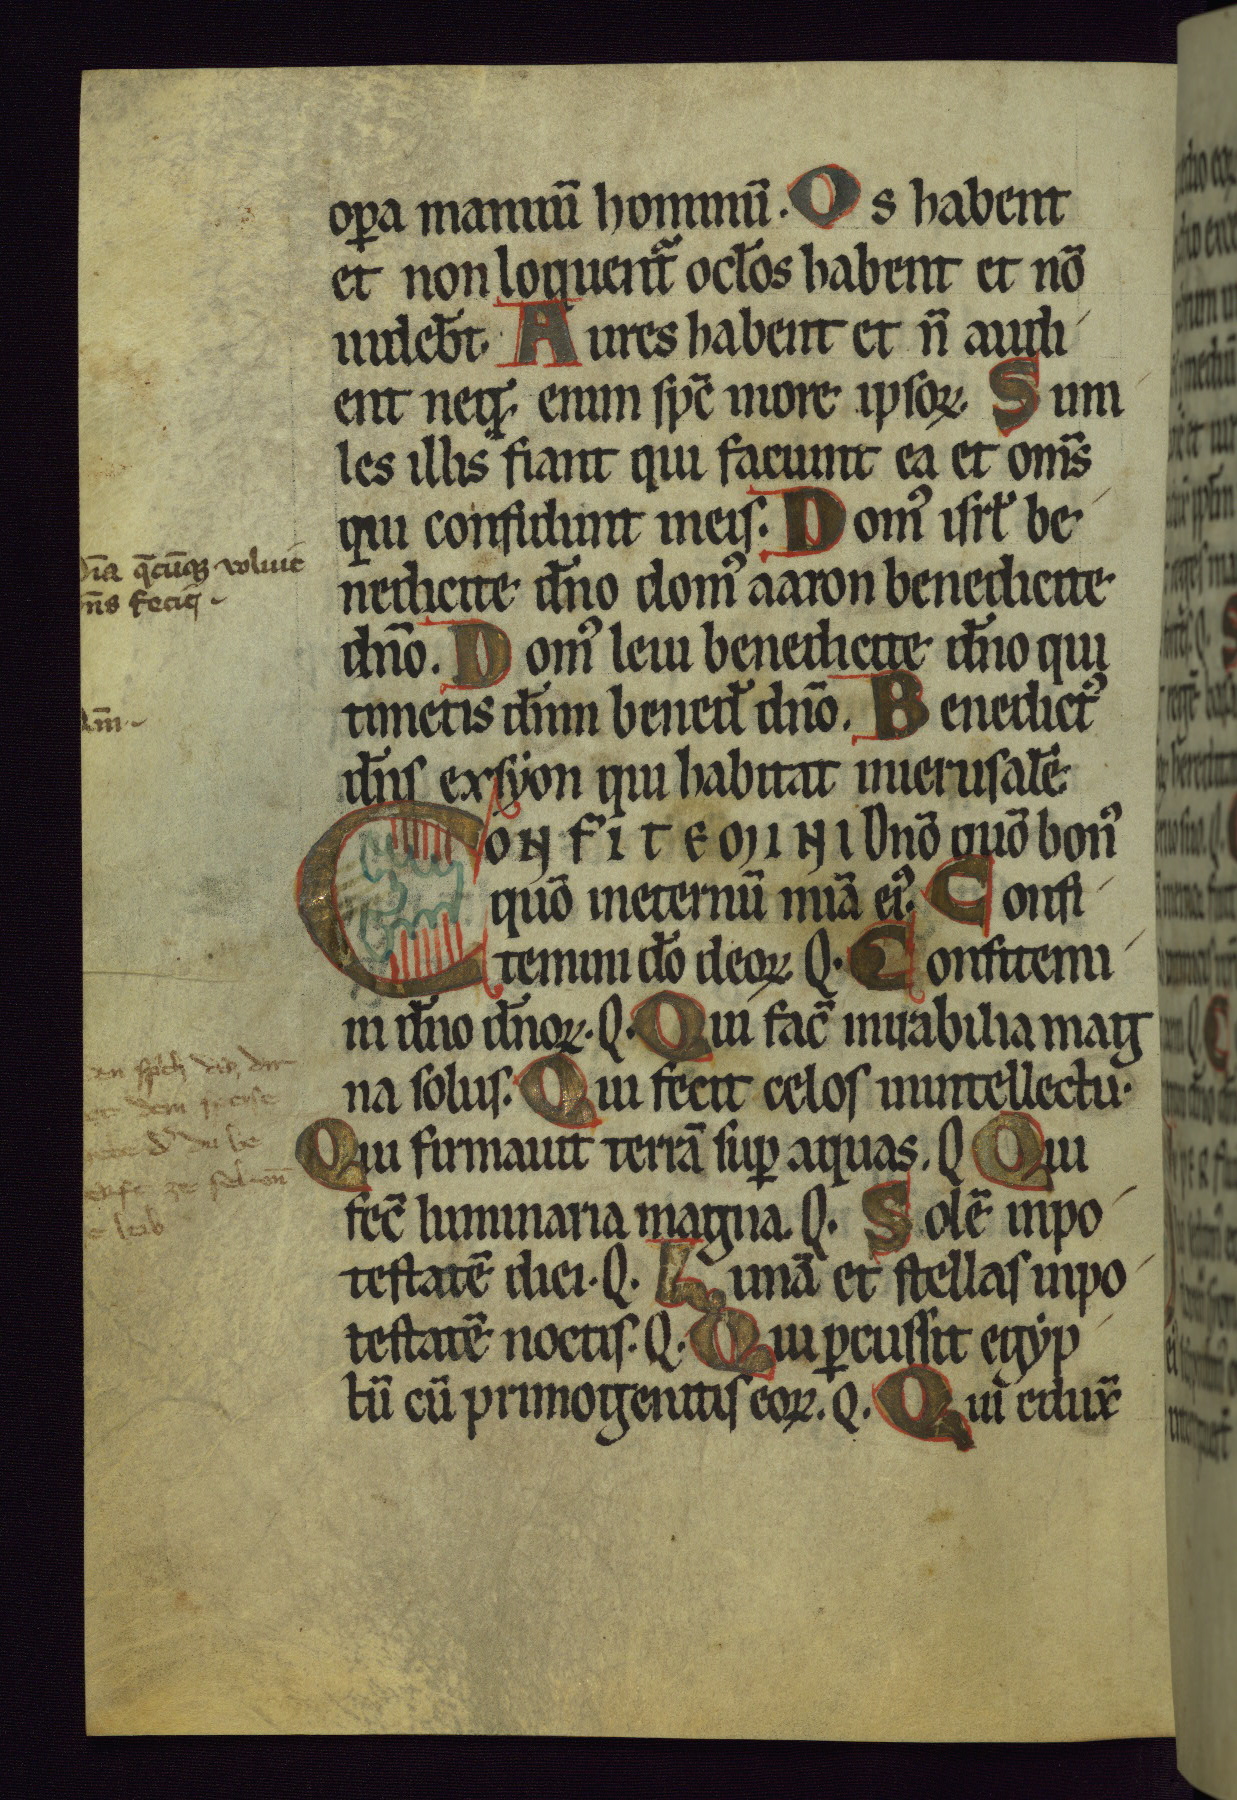 oꝑa manuū hominū. Os habent
et non loquent᷑ octos habent et nō
uidebt. Aures habent et n̄ audi
ent neq; enim spc̄ in ore ipsoꝝ. Sim
les illis fiant qui faciunt ea et oms̄
qui confidunt in eis. Domꝰ isrł be
nedicite dn̄o domꝰ aaron benedicite
dn̄o. Domꝰ leui benedicite dn̄o qui
timetis dn̄m bened dn̄o. Benedictꝰ
dn̄s ex syon qui habitat in ierusalē
Confitemini Dnō quō bonꝰ
quō in eternū mīa eiꝰ. Confi
temini dō deoꝝ Q. Confitemi
ni dn̄o dn̄oꝝ. Q. Qui fac̄ mirabilia mag
na solus. Qui fecit celos in intellectu.
Qui firmauit terrā suꝑ aquas. Q Qui
fec̄ luminaria magna. Q. Solē in po
testatē diei. Q. Lunā et stellas in po
testatē noctis. Q. Qui ꝑcussit egyp
tū cū primogenitis eoꝝ. Q. Qui edux̄
ōia q̄cūqꝫ voluit
fecit